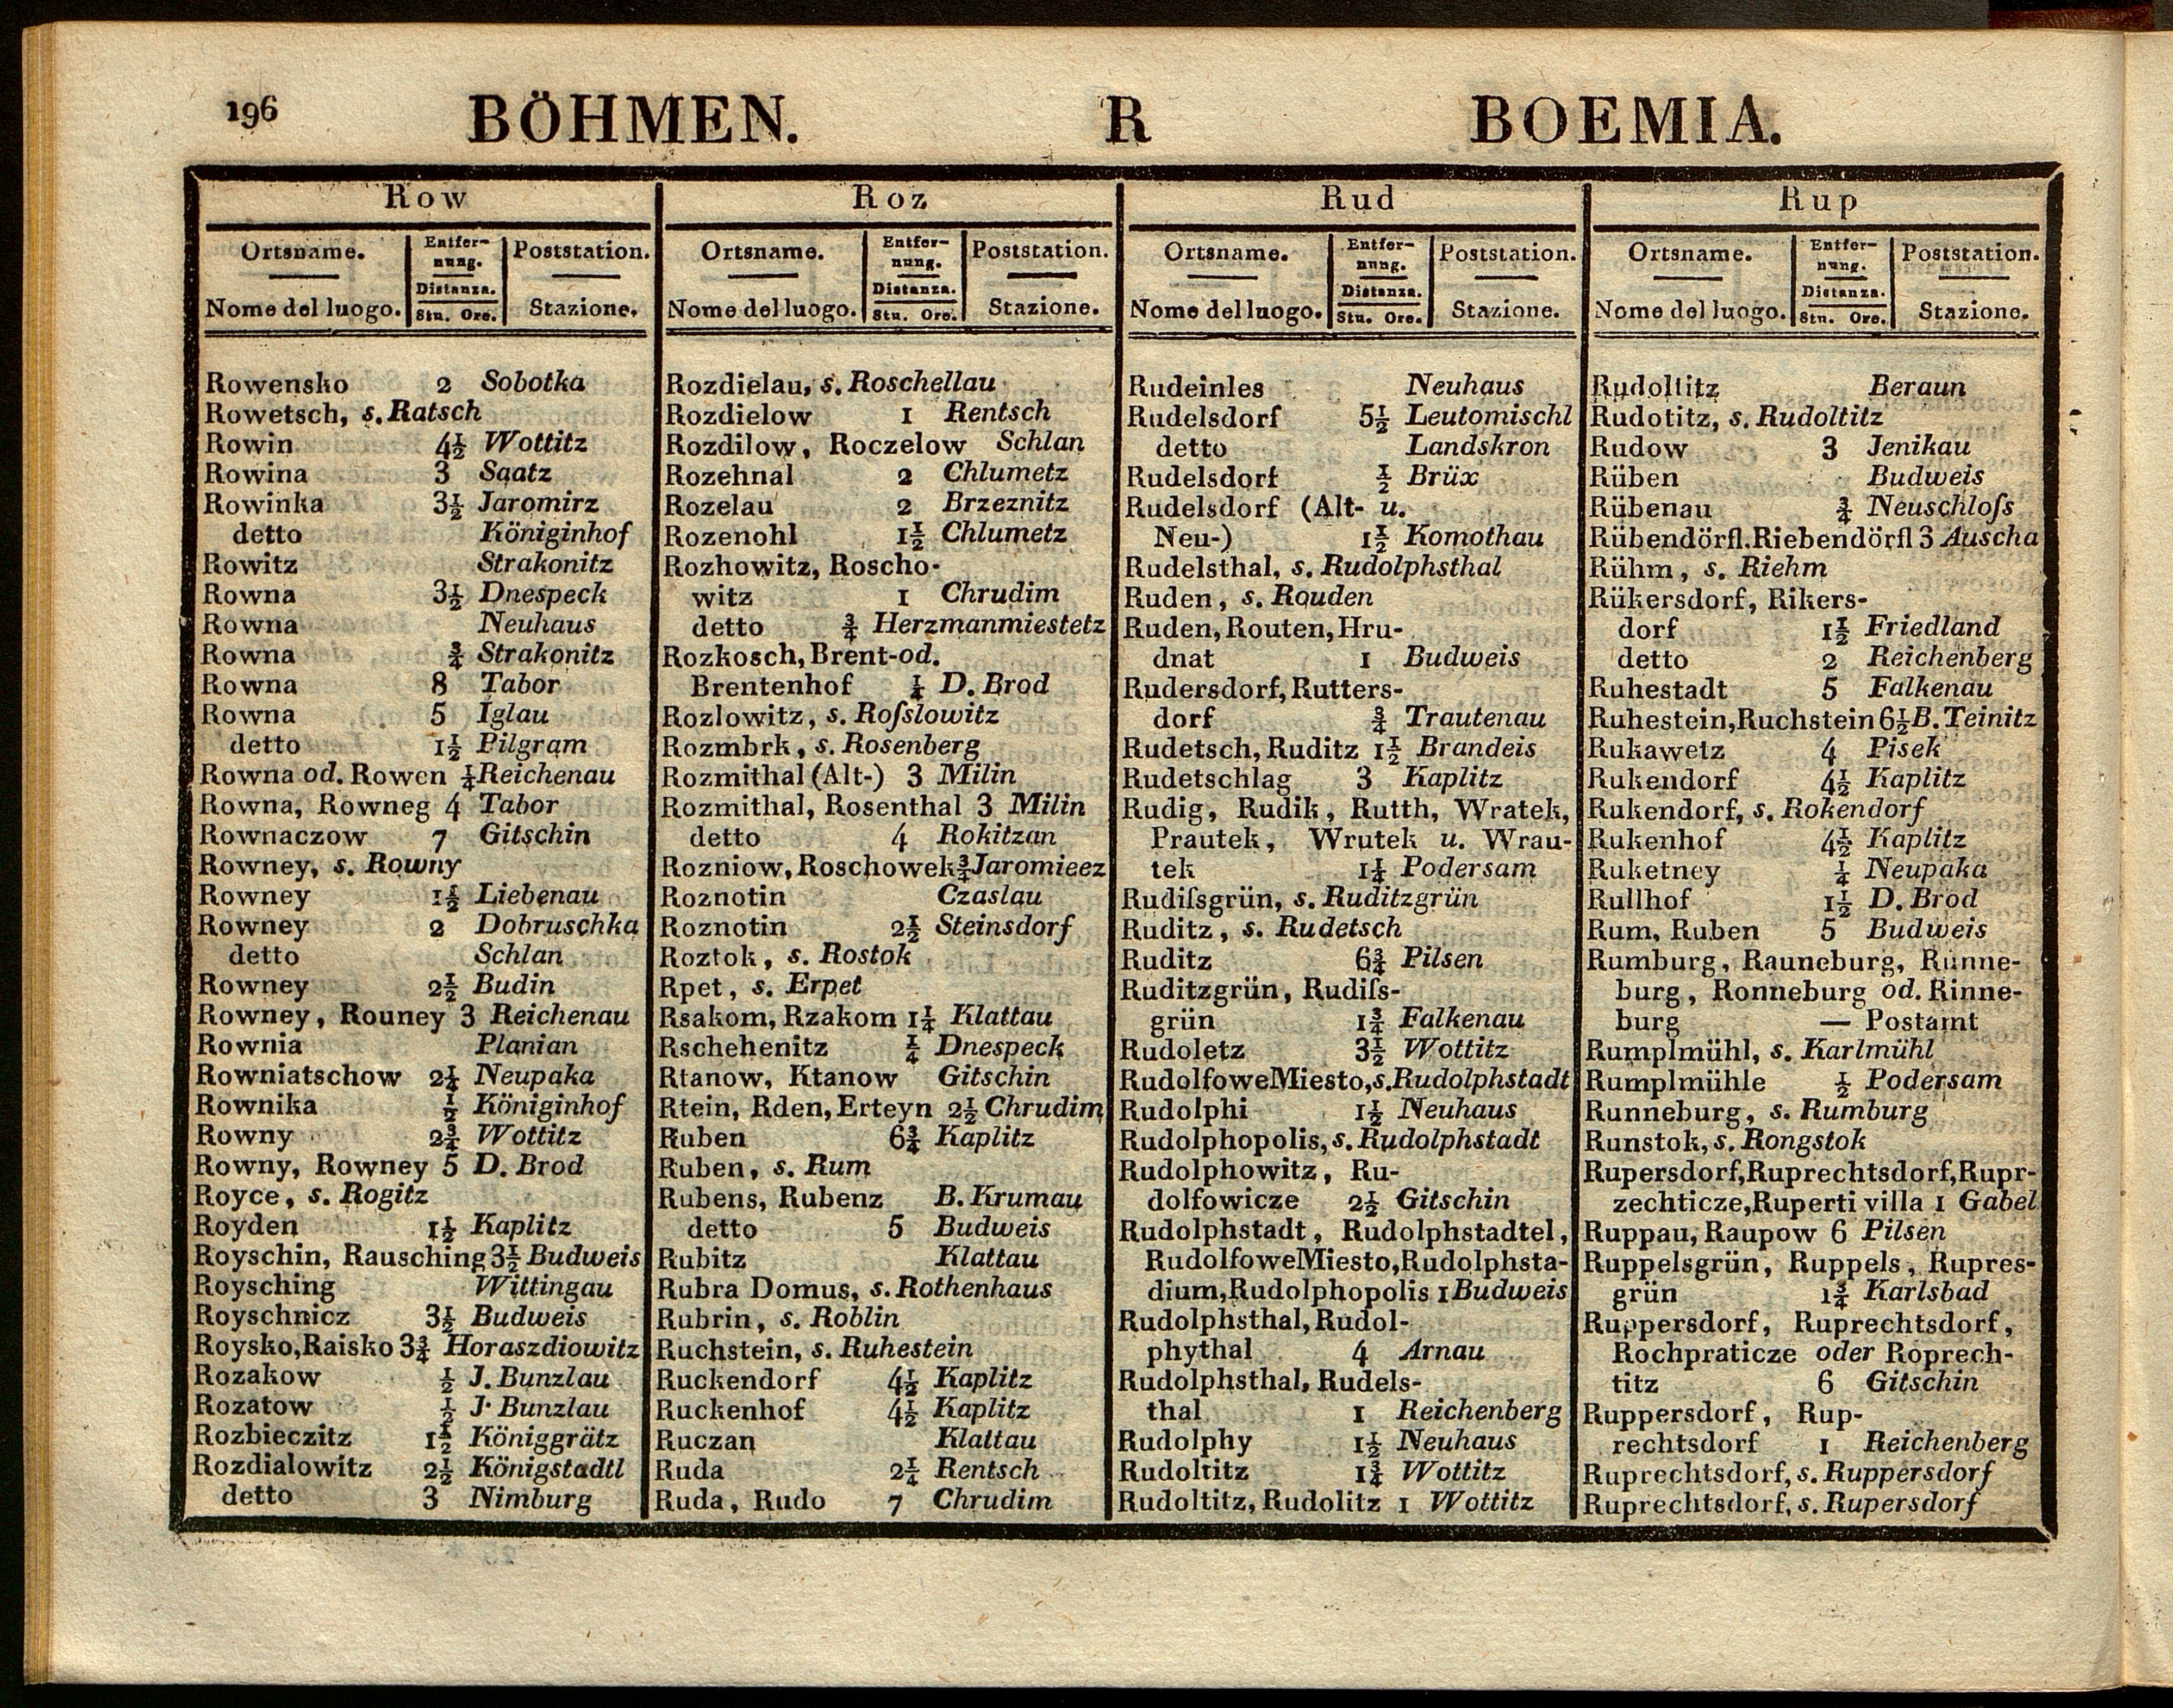 196 BÖHMEN. R BOEMIA.
Row
Ortsname. Entfer- Poststation.
nung.
Distanza.
Nome del luogo. Stu. Ore. Stazione.
Rowensko 2 Sobotka
Rowetsch, s. Ratsch
Rowin 4½ Wottitz
Rowina 3 Saatz
Rowinka 3½ Jaromirz
detto Königinhof
Rowitz Strakonitz
Rowna 3½ Dnespeck
Rowna Neuhaus
Rowna ¾ Strakonitz
Rowna 8 Tabor
Rowna 5 Iglau
detto 1½ Pilgram
Rowna od. Rowen ¼ Reichenau
Rowna, Rowneg 4 Tabor
Rownaczow 7 Gitschin
Rowney, s. Rowny
Rowney 1½ Liebenau
Rowney 2 Dobruschka
detto Schlan
Rowney 2½ Budin
Rowney, Rouney 3 Reichenau
Rownia Planian
Rowniatschow 2¼ Neupaka
Rownika ½ Königinhof
Rowny 2¾ Wottitz
Rowny, Rowney 5 D. Brod
Royce, s. Rogitz
Royden 1½ Kaplitz
Royschin, Rausching 3½ Budweis
Roysching Wittingau
Royschnicz 3½ Budweis
Roysko, Raisko 3¾ Horaszdiowitz
Rozakow ½ J. Bunzlau
Rozatow ½ J. Bunzlau
Rozbieczitz 1½ Königgrätz
Rozdialowitz 2½ Königstadtl
detto 3 Nimburg
Roz
Ortsname. Entfer- Poststation.
nung.
Distanza.
Nome del luogo. Stu. Ore. Stazione.
Rozdielau, s. Roschellau
Rozdielow 1 Rentsch
Rozdilow, Roczelow Schlan
Rozehnal 2 Chlumetz
Rozelau 2 Brzeznitz
Rozenohl 1½ Chlumetz
Rozhowitz, Roscho-
witz 1 Chrudim
detto ¾ Herzmanmiestetz
Rozkosch, Brent-od.
Brentenhof ¼ D. Brod
Rozlowitz, s. Roſslowitz
Rozmbrk, s. Rosenberg
Rozmithal (Alt-) 3 Milin
Rozmithal, Rosenthal 3 Milin
detto 4 Rokitzan
Rozniow, Roschowek ¾ Jaromieez
Roznotin Czaslau
Roznotin 2½ Steinsdorf
Roztok, s. Rostok
Rpet, s. Erpet
Rsakom, Rzakom 1¼ Klattau
Rschehenitz ¼ Dnespeck
Rtanow, Ktanow Gitschin
Rtein, Rden, Erteyn 2½ Chrudim
Ruben 6¾ Kaplitz
Ruben, s. Rum
Rubens, Rubenz B. Krumau
detto 5 Budweis
Rubitz Klattau
Rubra Domus, s. Rothenhaus
Rubrin, s. Roblin
Ruchstein, s. Ruhestein
Ruckendorf 4½ Kaplitz
Ruckenhof 4½ Kaplitz
Ruczan Klattau
Ruda 2¼ Rentsch
Ruda, Rudo 7 Chrudim
Rud
Ortsname. Entfer- Poststation.
nung.
Distanza.
Nome del luogo. Stu. Ore. Stazione.
Rudeinles Neuhaus
Rudelsdorf 5½ Leutomischl
detto Landskron
Rudelsdorf ½ Brüx
Rudelsdorf (Alt- u.
Neu-) 1½ Komothau
Rudelsthal, s. Rudolphsthal
Ruden, s. Rauden
Ruden, Routen, Hru-
dnat 1 Budweis
Rudersdorf, Rutters-
dorf ¾ Trautenau
Rudetsch, Ruditz 1½ Brandeis
Rudetschlag 3 Kaplitz
Rudig, Rudik, Rutth, Wratek,
Prautek, Wrutek u. Wrau-
tek 1¼ Podersam
Rudiſsgrün, s. Ruditzgrün
Ruditz, s. Rudetsch
Ruditz 6¾ Pilsen
Ruditzgrün, Rudiſs-
grün 1¾ Falkenau
Rudoletz 3½ Wottitz
RudolfoweMiesto, s. Rudolphstadt
Rudolphi 1½ Neuhaus
Rudolphopolis, s. Rudolphstadt
Rudolphowitz, Ru-
dolfowicze 2½ Gitschin
Rudolphstadt, Rudolphstadtel,
RudolfoweMiesto, Rudolphsta-
dium, Rudolphopolis 1 Budweis
Rudolphsthal, Rudol-
phythal 4 Arnau
Rudolphsthal, Rudels-
thal 1 Reichenberg
Rudolphy 1½ Neuhaus
Rudoltitz 1¾ Wottitz
Rudoltitz, Rudolitz 1 Wottitz
Rup
Ortsname. Entfer- Poststation.
nung.
Distanza.
Nome del luogo. Stu. Ore. Stazione.
Rudoltitz Beraun
Rudotitz, s. Rudoltitz
Rudow 3 Jenikau
Rüben Budweis
Rübenau ¾ Neuschloſs
Rübendörfl. Riebendörfl 3 Auscha
Rühm, s. Riehm
Rükersdorf, Rikers-
dorf 1½ Friedland
detto 2 Reichenberg
Ruhestadt 5 Falkenau
Ruhestein, Ruchstein 6½ B. Teinitz
Rukawetz 4 Pisek
Rukendorf 4½ Kaplitz
Rukendorf, s. Rokendorf
Rukenhof 4½ Kaplitz
Ruketney ¼ Neupaka
Rullhof 1½ D. Brod
Rum, Ruben 5 Budweis
Rumburg, Rauneburg, Runne-
burg, Ronneburg od. Rinne-
burg — Postamt
Rumplmühl, s. Karlmühl
Rumplmühle ½ Podersam
Runneburg, s. Rumburg
Runstok, s. Rongstok
Rupersdorf, Ruprechtsdorf, Rupr-
zechticze, Ruperti villa 1 Gabel
Ruppau, Raupow 6 Pilsen
Ruppelsgrün, Ruppels, Rupres-
grün 1¾ Karlsbad
Ruppersdorf, Ruprechtsdorf,
Rochpraticze oder Roprech-
titz 6 Gitschin
Ruppersdorf, Rup-
rechtsdorf 1 Reichenberg
Ruprechtsdorf, s. Ruppersdorf
Ruprechtsdorf, s. Rupersdorf